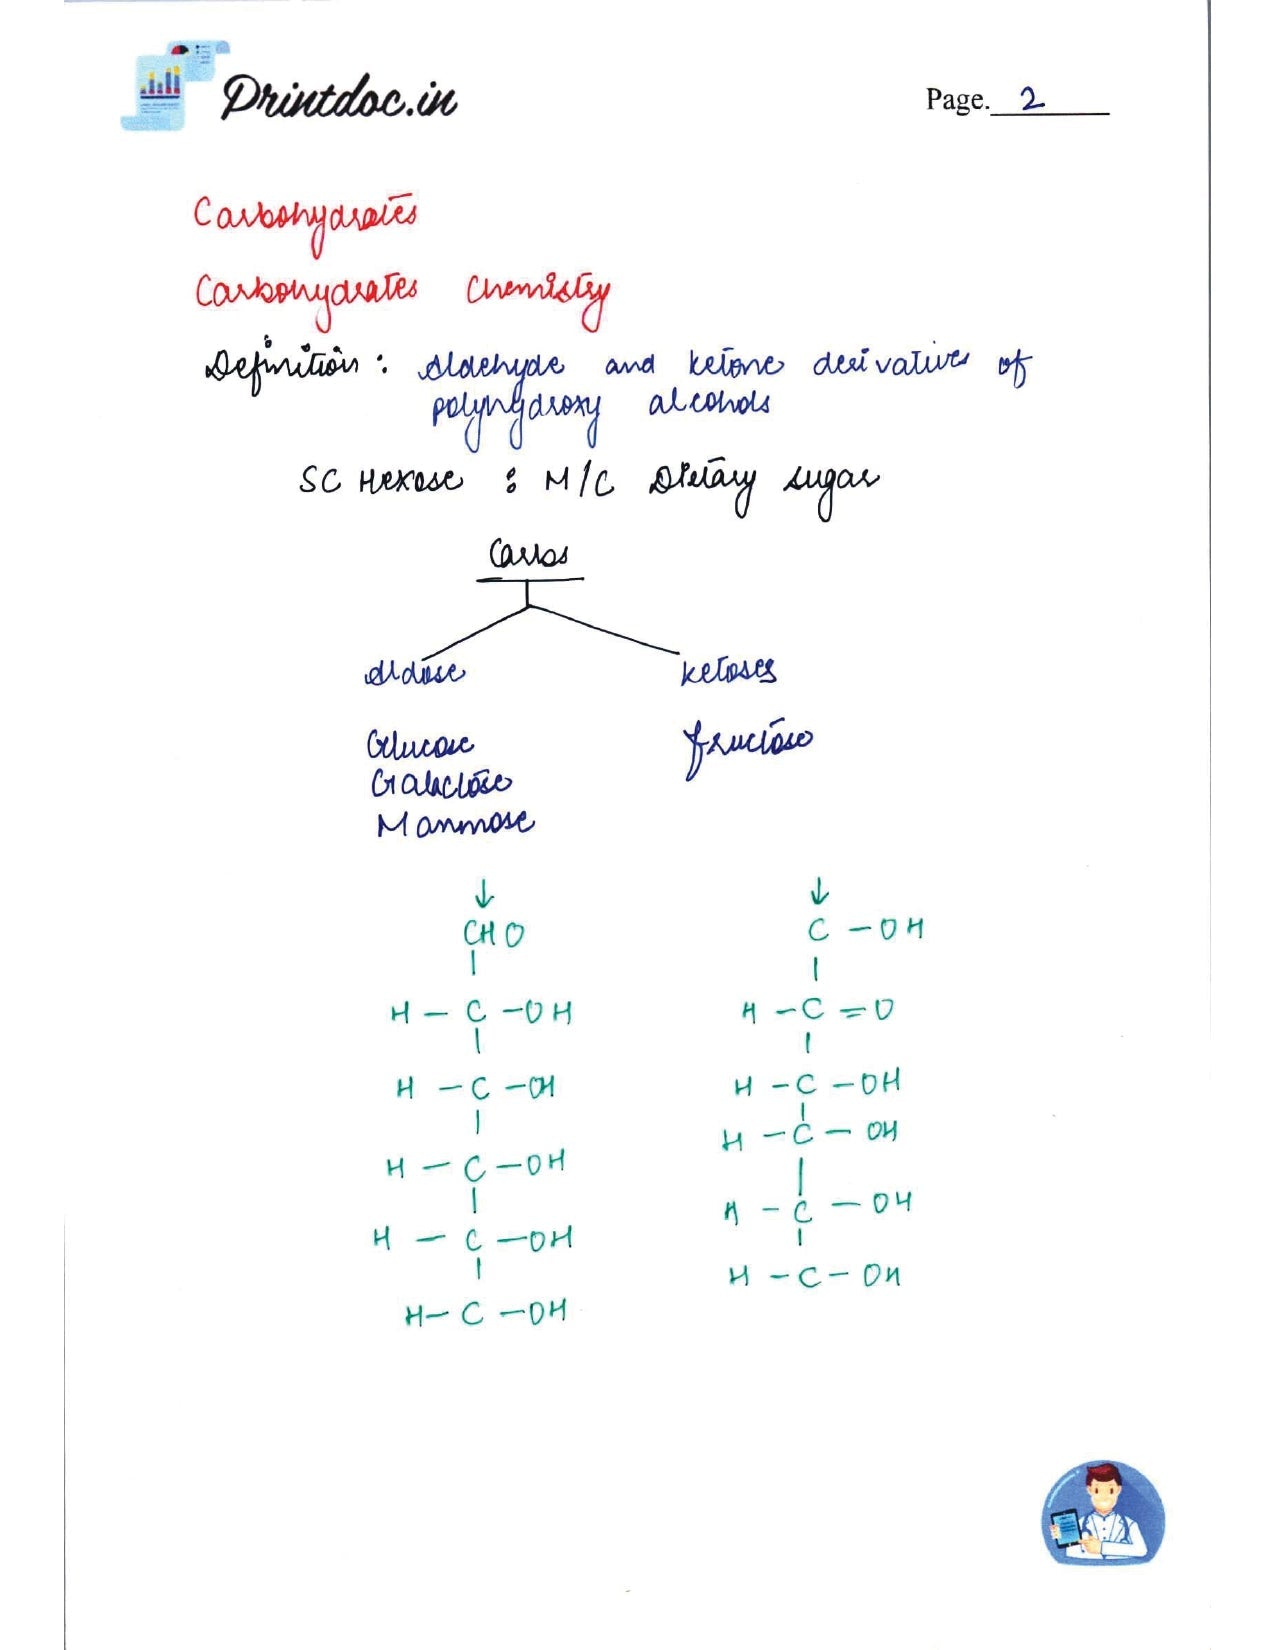 Printdoc.in
Page. 2
Carbohydrates
Carbohydrates Chemistry
Definition : Aldehyde and ketone derivatives of
polyhydroxy alcohols
SC Hexose : M/C Dietary sugar
Carbs
Aldose ketoses
Glucose fructose
Galactose
Mannose
↓ ↓
CHO C - OH
| |
H - C - OH H - C = O
| |
H - C - OH H - C - OH
| |
H - C - OH H - C - OH
| |
H - C - OH H - C - OH
| |
H - C - OH H - C - OH